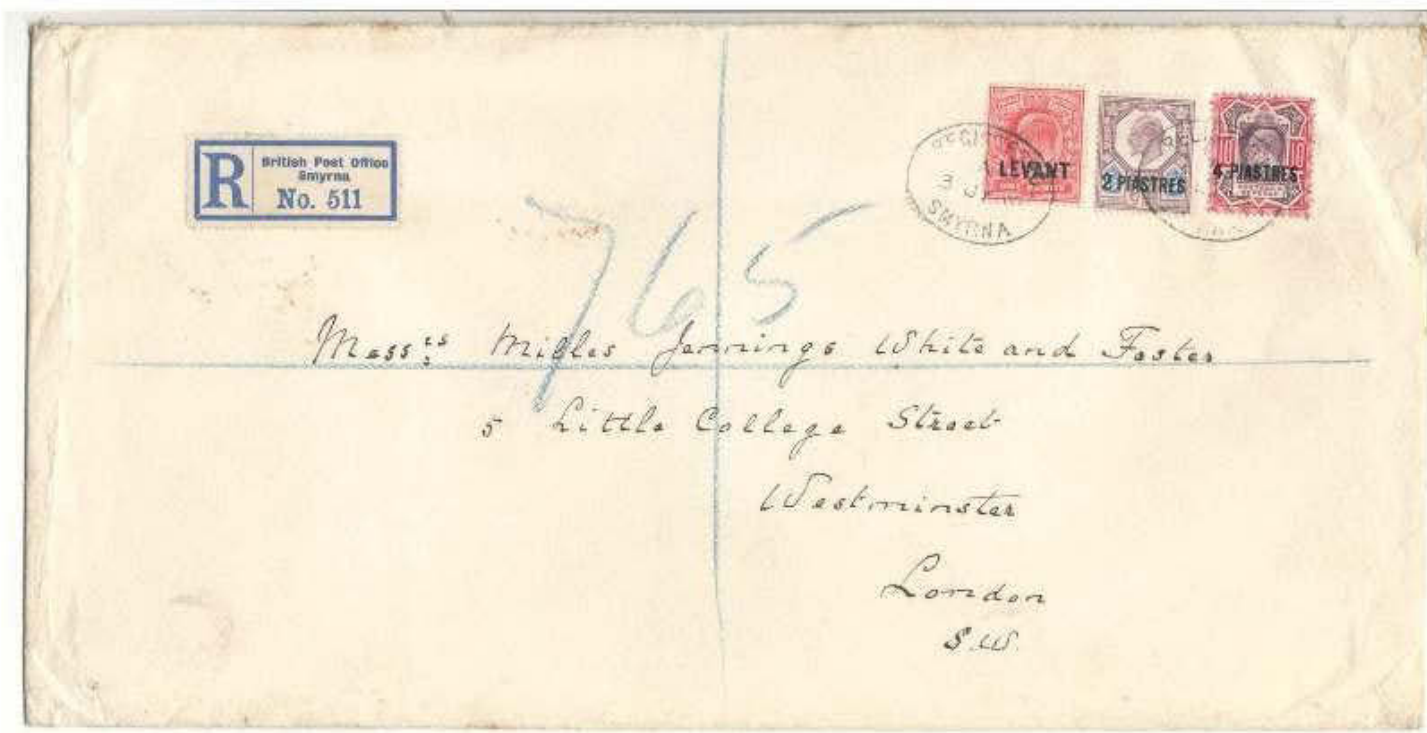 R
British Post Office
Smyrna
No. 511
LEVANT
2 PIASTRES
4 PIASTRES
10 10
SMYRNA
765
Mess:rs Milles Jennings White and Foster
5 Little College Street
Westminster
London
S.W.